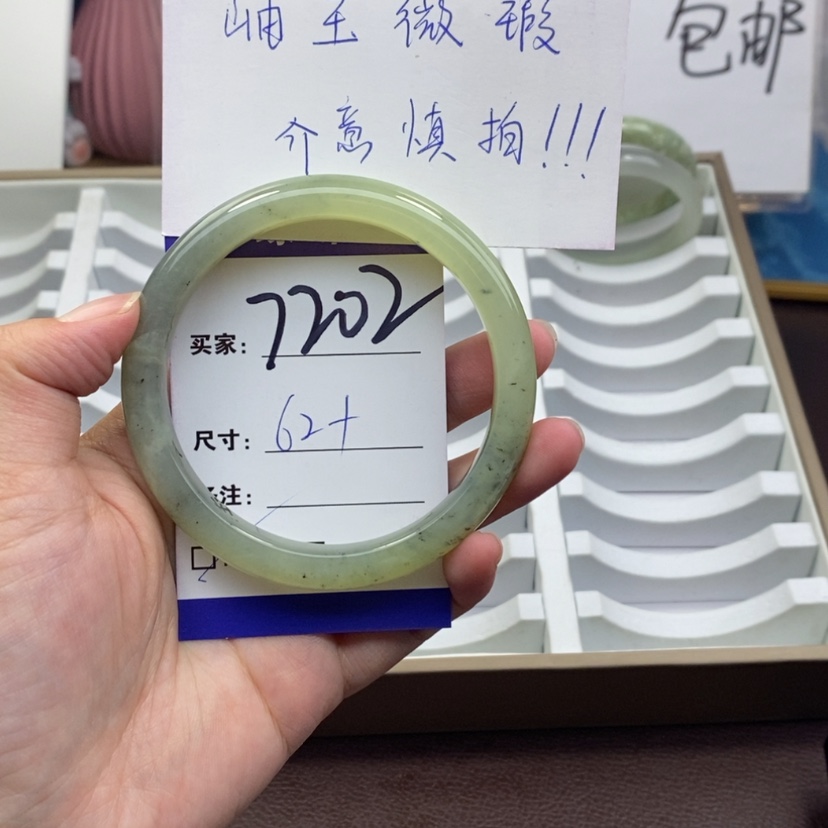 岫玉微瑕
包邮
介意慎拍!!!
买家: 7202
尺寸: 62+
注: